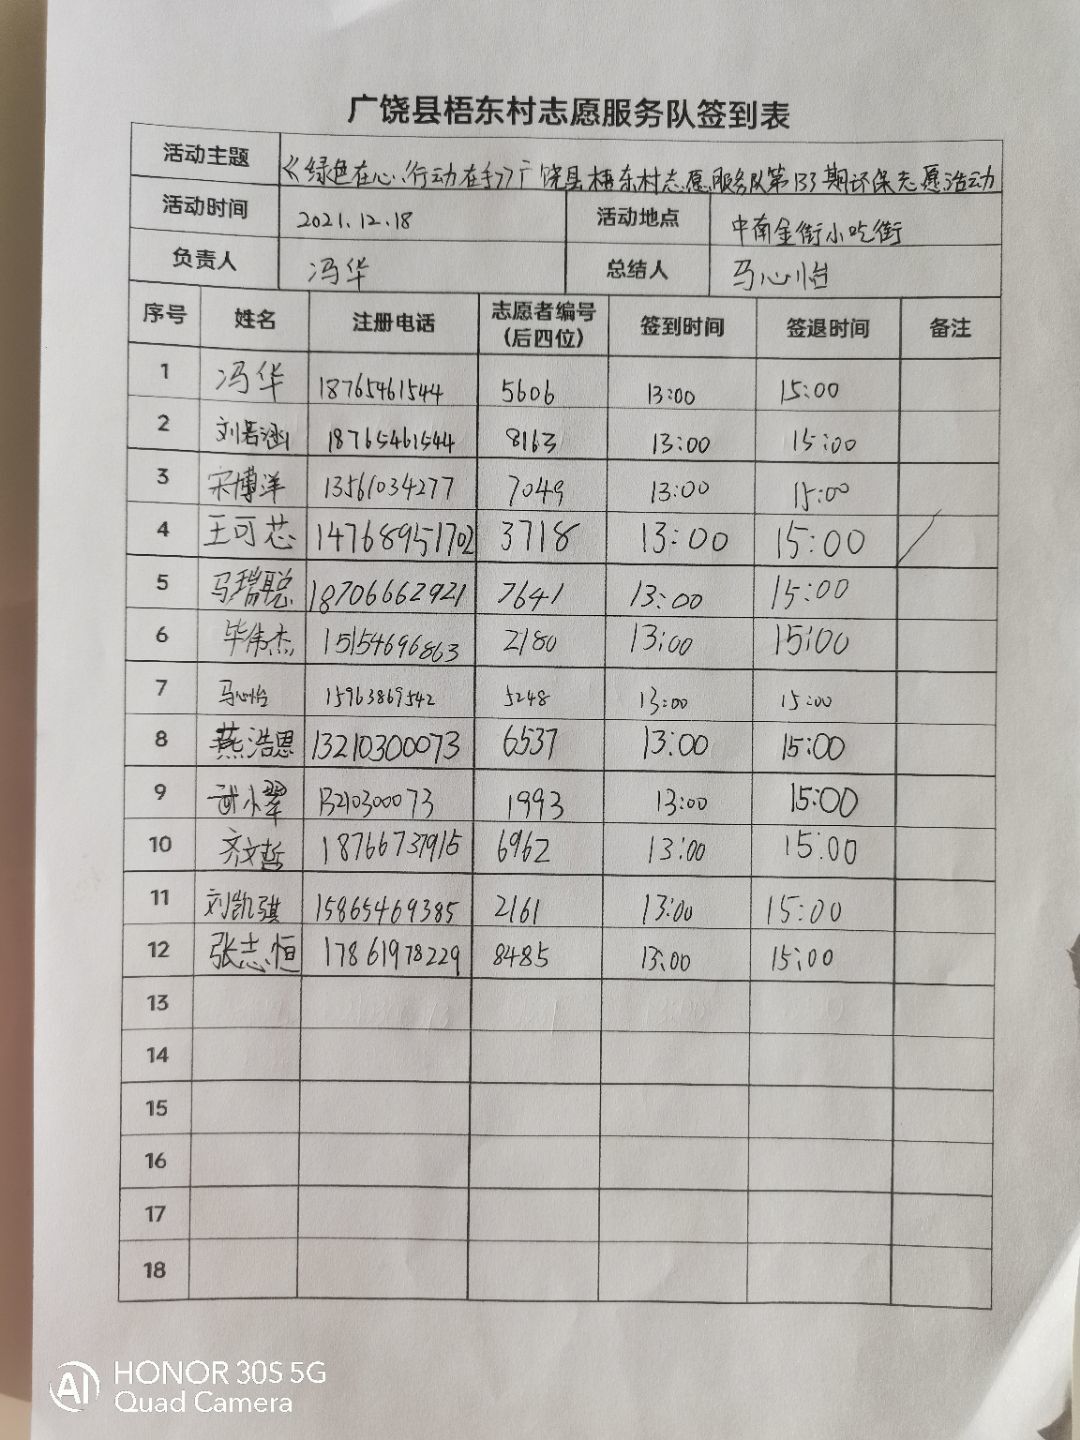 广饶县梧东村志愿服务队签到表
活动主题 《绿色在心、行动在手》广饶县梧东村志愿服务队第133期环保志愿活动
活动时间 2021.12.18 活动地点 中南金街小吃街
负责人 冯华 总结人 马心怡
序号 姓名 注册电话 志愿者编号(后四位) 签到时间 签退时间 备注
1 冯华 18765461544 5606 13:00 15:00
2 刘若涵 18765461544 8163 13:00 15:00
3 宋博洋 13561034277 7049 13:00 15:00
4 王可芯 14768951702 3718 13:00 15:00
5 马瑞聪 18706662921 7641 13:00 15:00
6 毕伟杰 15154696863 2180 13:00 15:00
7 马心怡 15963869542 5248 13:00 15:00
8 燕浩恩 13210300073 6537 13:00 15:00
9 武小翠 13210300073 1993 13:00 15:00
10 齐文哲 18766737915 6962 13:00 15:00
11 刘凯骐 15865469385 2161 13:00 15:00
12 张志恒 17861978229 8485 13:00 15:00
13
14
15
16
17
18
AI HONOR 30S 5G
Quad Camera